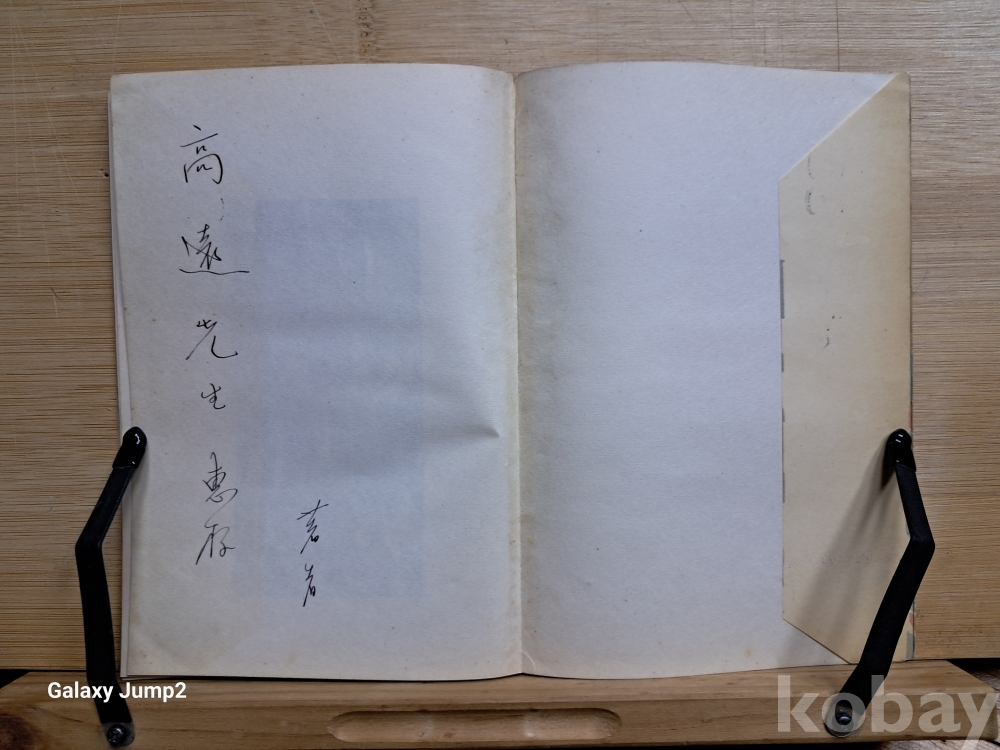 高遠先生 惠存
著者
Galaxy Jump2
kobay